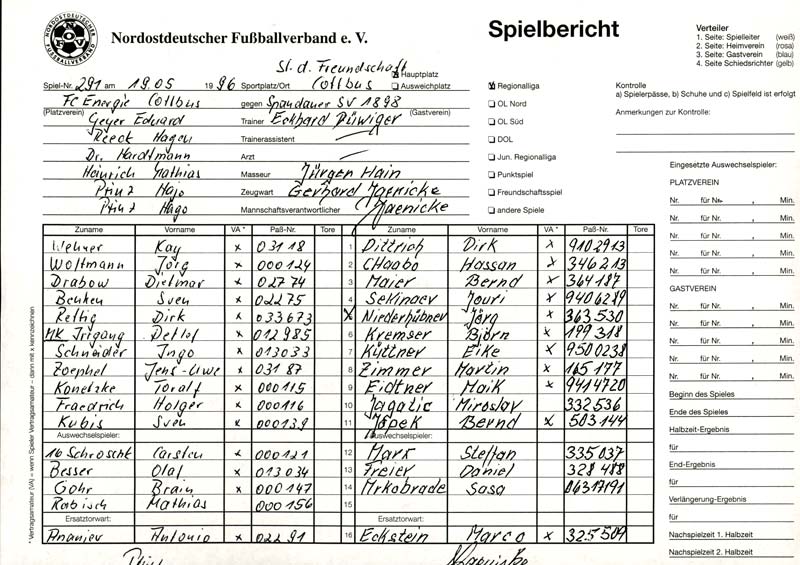 NORDOSTDEUTSCHER FUSSBALLVERBAND
NOFV
Nordostdeutscher Fußballverband e. V.
Spielbericht
Verteiler
1. Seite: Spielleiter (weiß)
2. Seite: Heimverein (rosa)
3. Seite: Gastverein (blau)
4. Seite Schiedsrichter (gelb)
St. d. Freundschaft
Hauptplatz
Spiel-Nr. 291 am 19.05 1996 Sportplatz/Ort Cottbus Ausweichplatz
FC Energie Cottbus gegen Spandauer SV 1898
(Platzverein) (Gastverein)
Geyer Eduard Trainer Eckhard Düwiger
Reeck Hagen Trainerassistent
Dr. Hardtmann Arzt
Heinrich Mathias Masseur Jürgen Hain
Prinz Hajo Zeugwart Gerhard Jaenicke
Prinz Hago Mannschaftsverantwortlicher G. Jaenicke
x Regionalliga
OL Nord
OL Süd
DOL
Jun. Regionalliga
Punktspiel
Freundschaftsspiel
andere Spiele
Kontrolle
a) Spielerpässe, b) Schuhe und c) Spielfeld ist erfolgt
Anmerkungen zur Kontrolle:
Zuname Vorname VA * Paß-Nr. Tore Zuname Vorname VA * Paß-Nr. Tore
Wehner Kay x 03118 1 Dittrich Dirk x 9102913
Woltmann Jörg x 000124 2 CHaabo Hassan x 346213
Drabow Dietmar x 02774 3 Maier Bernd x 364187
Benken Sven x 02275 4 Selvinaev Jouri x 9406289
Rettig Dirk x 033673 Niederhübner Jörg x 363530
MK Irrgang Detlof x 012985 6 Kremser Björn x 199318
Schneider Ingo x 013033 7 Küttner Eike x 9500238
Zoephel Jens-Uwe x 03187 8 Zimmer Martin x 165177
Konetzke Toralf x 000115 9 Eidtner Maik x 9414720
Fraedrich Holger x 000116 10 Jagatic Miroslav 332536
Kubis Sven x 000139 11 Jopek Bernd x 503144
Auswechselspieler: Auswechselspieler:
16 Schroschk Carsten x 000121 12 Mark Steffan 335037
Besser Olaf x 013034 13 Freier Daniel 328488
Gohr Brain x 000147 14 Mrkobrade Sasa 06317191
Rabisch Mathias 000156 15
Ersatztorwart: Ersatztorwart:
Ananiev Antonio x 02291 16 Eckstein Marco x 325509
Prinz
* Vertragsamateur (VA) – wenn Spieler Vertragsamateur – dann mit x kennzeichnen
Eingesetzte Auswechselspieler:
PLATZVEREIN
Nr. für Nr. , Min.
Nr. für Nr. , Min.
Nr. für Nr. , Min.
Nr. für Nr. , Min.
GASTVEREIN
Nr. für Nr. , Min.
Nr. für Nr. , Min.
Nr. für Nr. , Min.
Nr. für Nr. , Min.
Beginn des Spieles
Ende des Spieles
Halbzeit-Ergebnis
für
End-Ergebnis
für
Verlängerung-Ergebnis
für
Nachspielzeit 1. Halbzeit
Nachspielzeit 2. Halbzeit